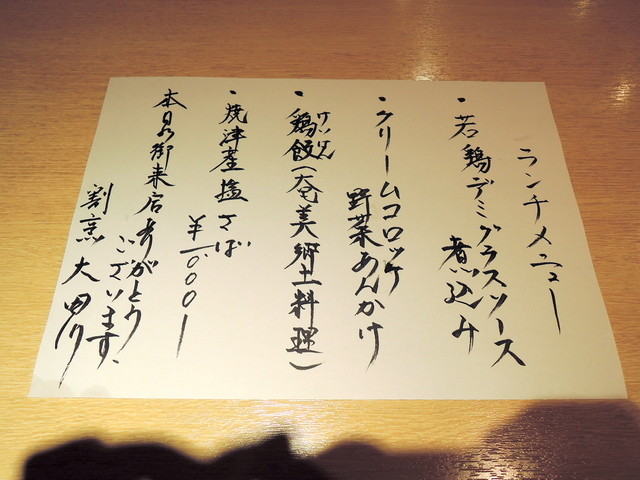 ランチメニュー
・若鶏デミグラスソース
煮込み
・クリームコロッケ
野菜あんかけ
・鶏飯(奄美郷土料理)
けいはん
・焼津産塩さば
¥1,000ー
本日は御来店ありがとう
ございます。
割烹 大田川